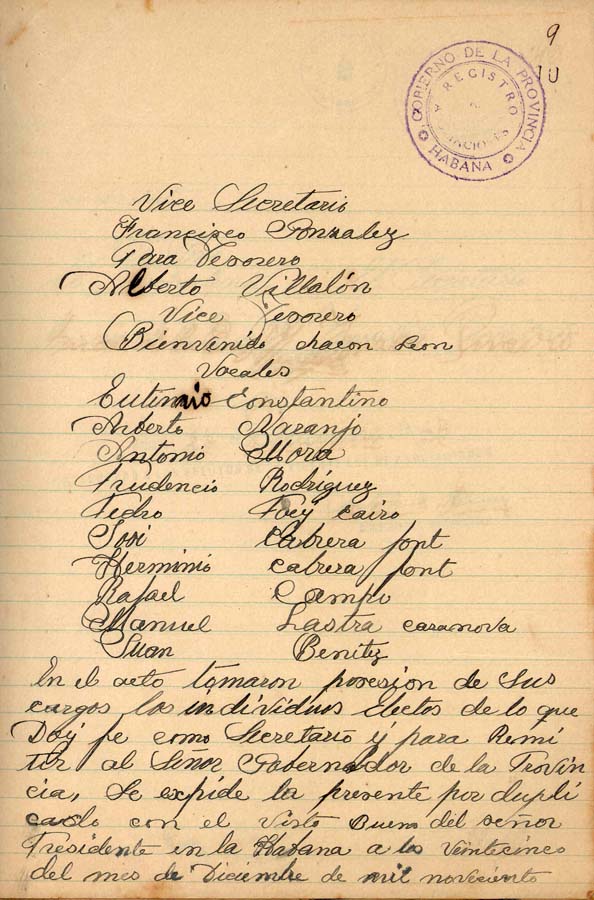 9
10
GOBIERNO DE LA PROVINCIA
REGISTRO
HABANA
Vice Secretario
Francisco Gonzalez
Para Tesorero
Alberto Villalón
Vice Tesorero
Bienvenido chacon Leon
Vocales
Eutimio Constantino
Arberto Naranjo
Antonio Mora
Prudencio Rodriguez
Pedro Foÿ cairo
José Cabrera font
Herminio cabrera font
Rafael Campo
Manuel Lastra cazanova
Juan Benitez
En el acto tomaron posesion de sus
cargos los individuos Electos de lo que
Doÿ fe como Secretario ÿ para Remi
tir al Señor Gobernador de la Provin
cia, Se expide la presente por dupli
cado con el Visto Bueno del señor
Presidente en la Habana a los Veinticinco
del mes de Diciembre de mil novesiento